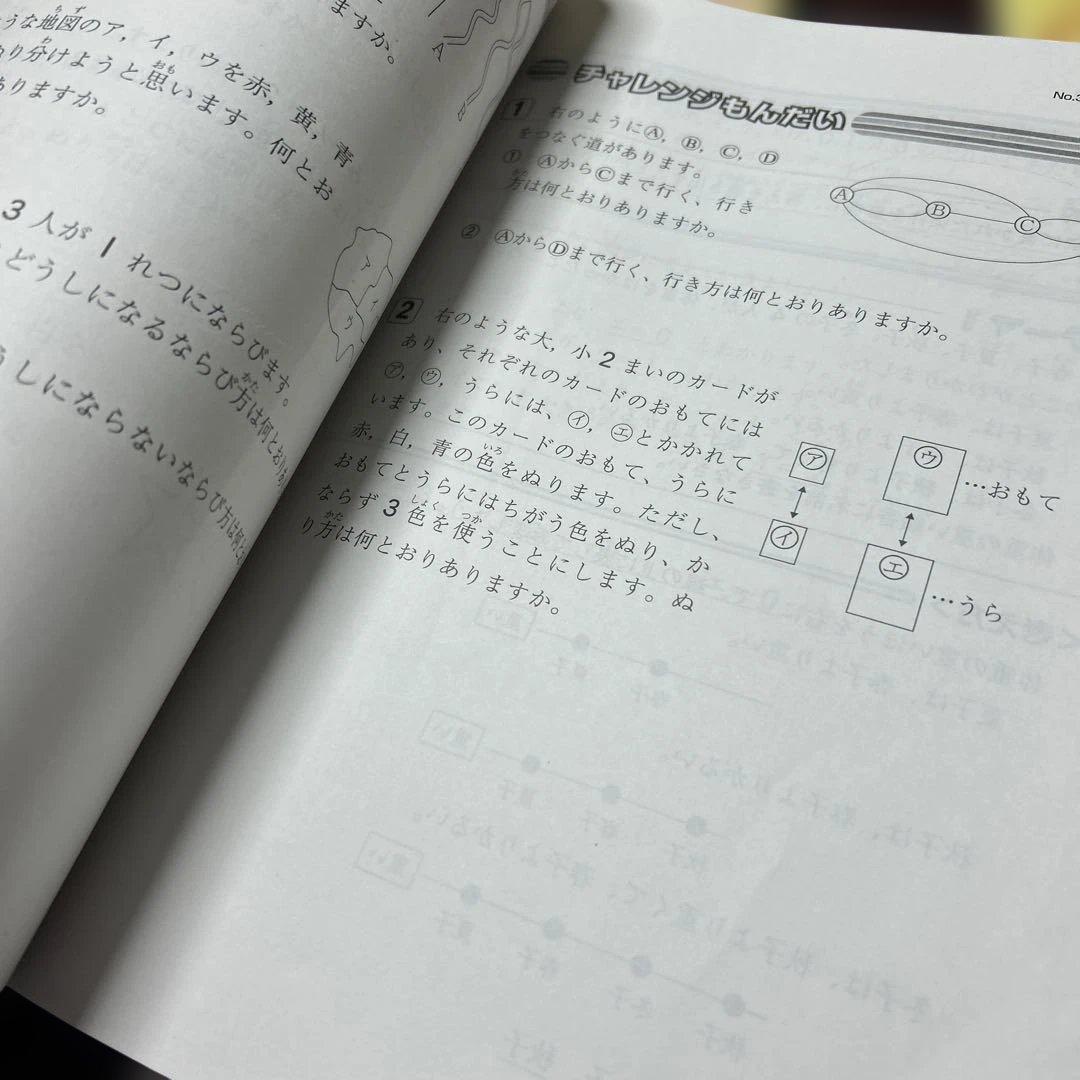 ますか。
A
B
うな地図のア，イ，ウを赤，黄，青
り分けようと思います。何とお
ありますか。
ア
ウ
3人が1れつにならびます。
どうしになるならび方は何とおり
うしにならないならび方は何とお
チャレンジもんだい
No.3
1 右のようにⒶ，Ⓑ，Ⓒ，Ⓓ
をつなぐ道があります。
① ⒶからⒸまで行く、行き
方は何とおりありますか。
② ⒶからⒹまで行く、行き方は何とおりありますか。
Ⓐ
Ⓑ
Ⓒ
2 右のような大，小2まいのカードが
あり、それぞれのカードのおもてには
㋐，㋒，うらには、㋑，㋓とかかれて
います。このカードのおもて、うらに
赤，白，青の色をぬります。ただし、
おもてとうらにはちがう色をぬり、か
ならず3色を使うことにします。ぬ
り方は何とおりありますか。
㋐
㋒
…おもて
㋑
㋓
…うら